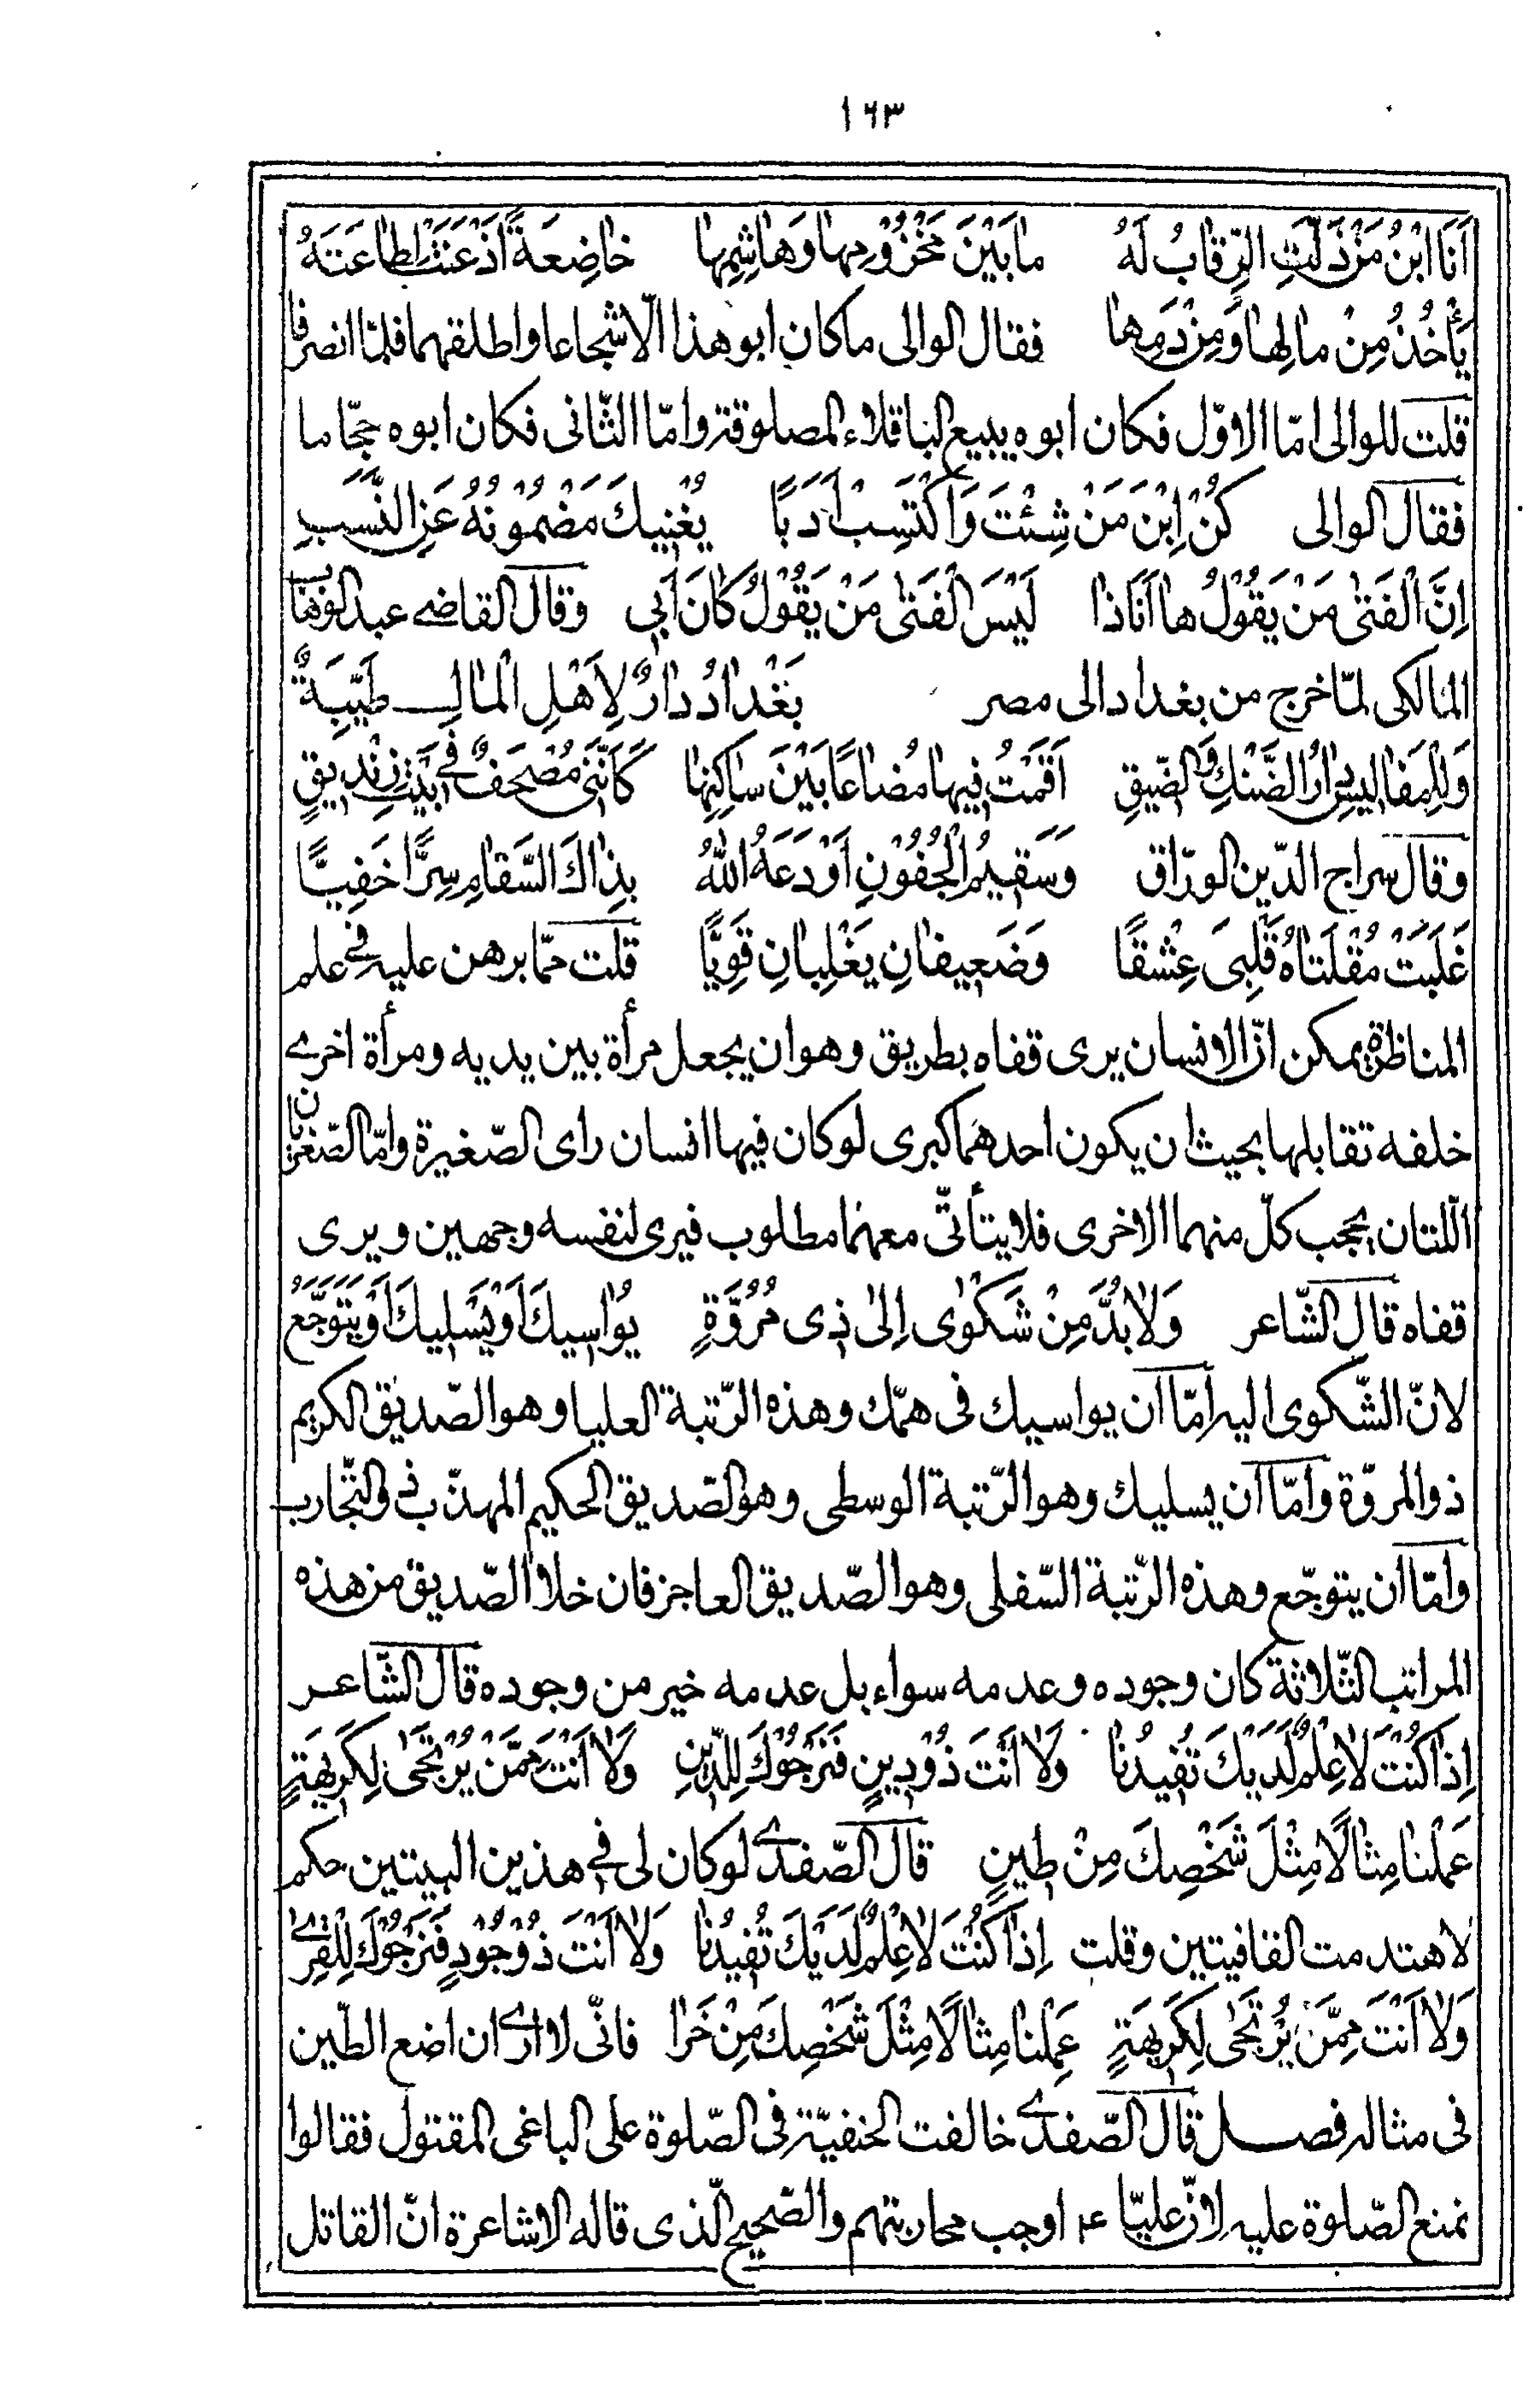 ١٦٣
اَنَا ابْنُ مَنْ ذَلَّتِ الرِّقابُ لَهُ مابَيْنَ مَخْزُومِها وَهاشِمِها خاضِعَةً اَذْعَنَتْ لِطاعَتَهُ
يَأْخُذُ مِنْ مالِها وَمِنْ دَمِها فقال الوالى ماكان ابوهذا الّا شجاعا واطلقهما فلمّا انصرفا
قلت للوالى امّا الاوّل فكان ابوه يبيع الباقلاء المصلوقة وامّا الثّانى فكان ابوه حجّاما
فقال الوالى كُنْ اِبْنَ مَنْ شِئْتَ وَاكْتَسِبْ اَدَبًا يُغْنِيكَ مَضْمُونُهُ عَنِ النَّسَبِ
اِنَّ الْفَتىٰ مَنْ يَقُولُ ها اَنَاذا لَيْسَ الْفَتىٰ مَنْ يَقُولُ كَانَ اَبى وقال القاضے عبد الوهاب
المالكى لمّا خرج من بغداد الى مصر بَغْدادُ دارٌ لِاَهْلِ الْمالِ طَيِّبَةٌ
وَلِلْمَفاليسِ دارُ الضَّنْكِ وَالضّيقِ اَقَمْتُ فيها مُضاعًا بَيْنَ ساكِنِها كَاَنَّنى مُصْحَفٌ فے بَيْتِ زِنْديقٍ
وقال سراج الدّين الورّاق وَسَقيمُ الْجُفُونِ اَوْدَعَهُ اللهُ بِذاكَ السَّقامِ سِرًّا خَفِيًّا
غَلَبَتْ مُقْلَتاهُ قَلْبِىَ عِشْقًا وَضَعيفانِ يَغْلِبانِ قَوِيًّا قلت ممّا برهن عليه فے علم
المناظرة يمكن انّ الانسان يرى قفاه بطريق وهوان يجعل مرأة بين يديه ومرأة اخرے
خلفه تقابلها بحيث ان يكون احدهما كبرى لوكان فيها انسان راى الصّغيرة وامّا الصّغريان
اللّتان يحجب كلّ منهما الاخرى فلايتأتّى معهما مطلوب فيرى لنفسه وجهين ويرى
قفاه قال الشّاعر وَلابُدَّ مِنْ شَكْوٰى اِلىٰ ذى مُرُوَّةٍ يُواسيكَ اَوْ يُسْليكَ اَوْ يَتَوَجَّعُ
لانّ الشّكوى اليه امّا ان يواسيك فى همّك وهذه الرّتبة العليا وهو الصّديق الكريم
ذو المروّة وامّا ان يسليك وهو الرّتبة الوسطى وهو الصّديق الحكيم المهذّب ذى التّجارب
وامّا ان يتوجّع وهذه الرّتبة السّفلى وهو الصّديق العاجز فان خلا الصّديق من هذه
المراتب الثّلاثة كان وجوده وعدمه سواء بل عدمه خير من وجوده قال الشّاعر
اِذا كُنْتَ لاعِلْمٌ لَدَيْكَ تُفيدُنا وَلا اَنْتَ ذُودينٍ فَنَرْجُوكَ لِلدّينِ وَلا اَنْتَ مِمَّنْ يُرْتَجىٰ لِكَريهَةٍ
عَمِلْنا مِثالًا مِثْلَ شَخْصِكَ مِنْ طينٍ قال الصّفدے لوكان لى فے هذين البيتين حكم
لاهتدمت القافيتين وقلت اِذا كُنْتَ لاعِلْمٌ لَدَيْكَ تُفيدُنا وَلا اَنْتَ ذُوجُودٍ فَنَرْجُوكَ لِلْقِرےٰ
وَلا اَنْتَ مِمَّنْ يُرْتَجىٰ لِكَريهَةٍ عَمِلْنا مِثالًا مِثْلَ شَخْصِكَ مِنْ خَرا فانّى لا ارے ان اضع الطّين
فى مثاله فصل قال الصّفدے خالفت الحنفيّة فى الصّلوة على الباغى المقتول فقالوا
نمنع الصّلوة عليه لانّ عليّا ع اوجب محاربتهم والصّحيح الّذى قاله الاشاعرة انّ القاتل